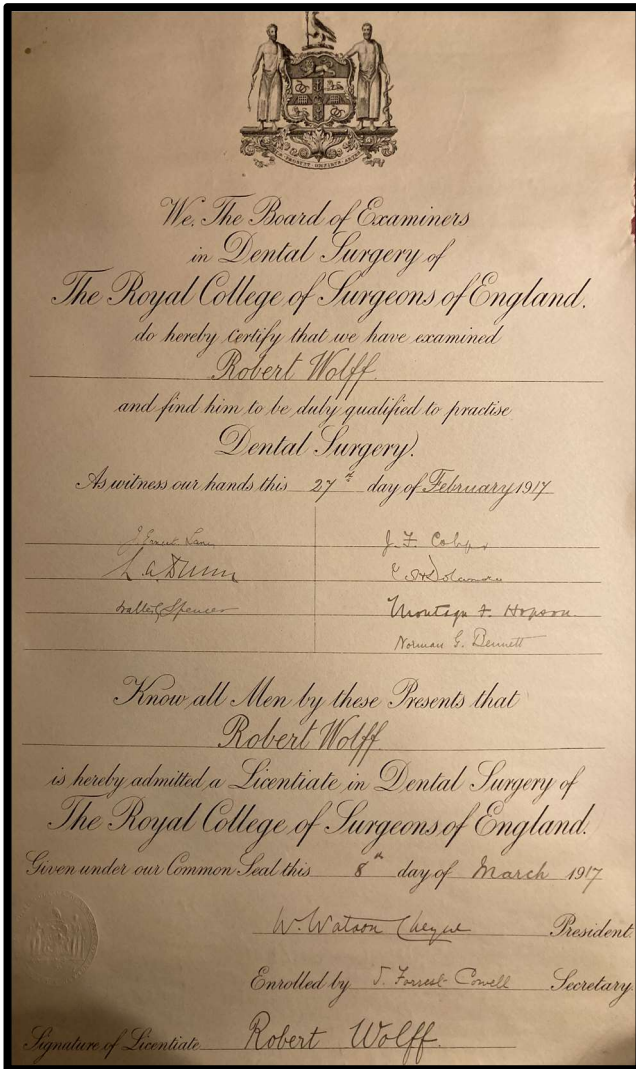 We, The Board of Examiners
in Dental Surgery of
The Royal College of Surgeons of England.
do hereby certify that we have examined
Robert Wolff
and find him to be duly qualified to practise
Dental Surgery.
As witness our hands this 27th day of February 1917
J. Ernest Lane
J. F. Colyer
L. A. Dunn
Walter G Spencer
Montagu F. Hopson.
Norman G. Bennett
Know all Men by these Presents that
Robert Wolff
is hereby admitted a Licentiate in Dental Surgery of
The Royal College of Surgeons of England.
Given under our Common Seal this 8th day of March 1917
W. Watson Cheyne President.
Enrolled by S. Forrest Cowell Secretary.
Signature of Licentiate Robert Wolff.